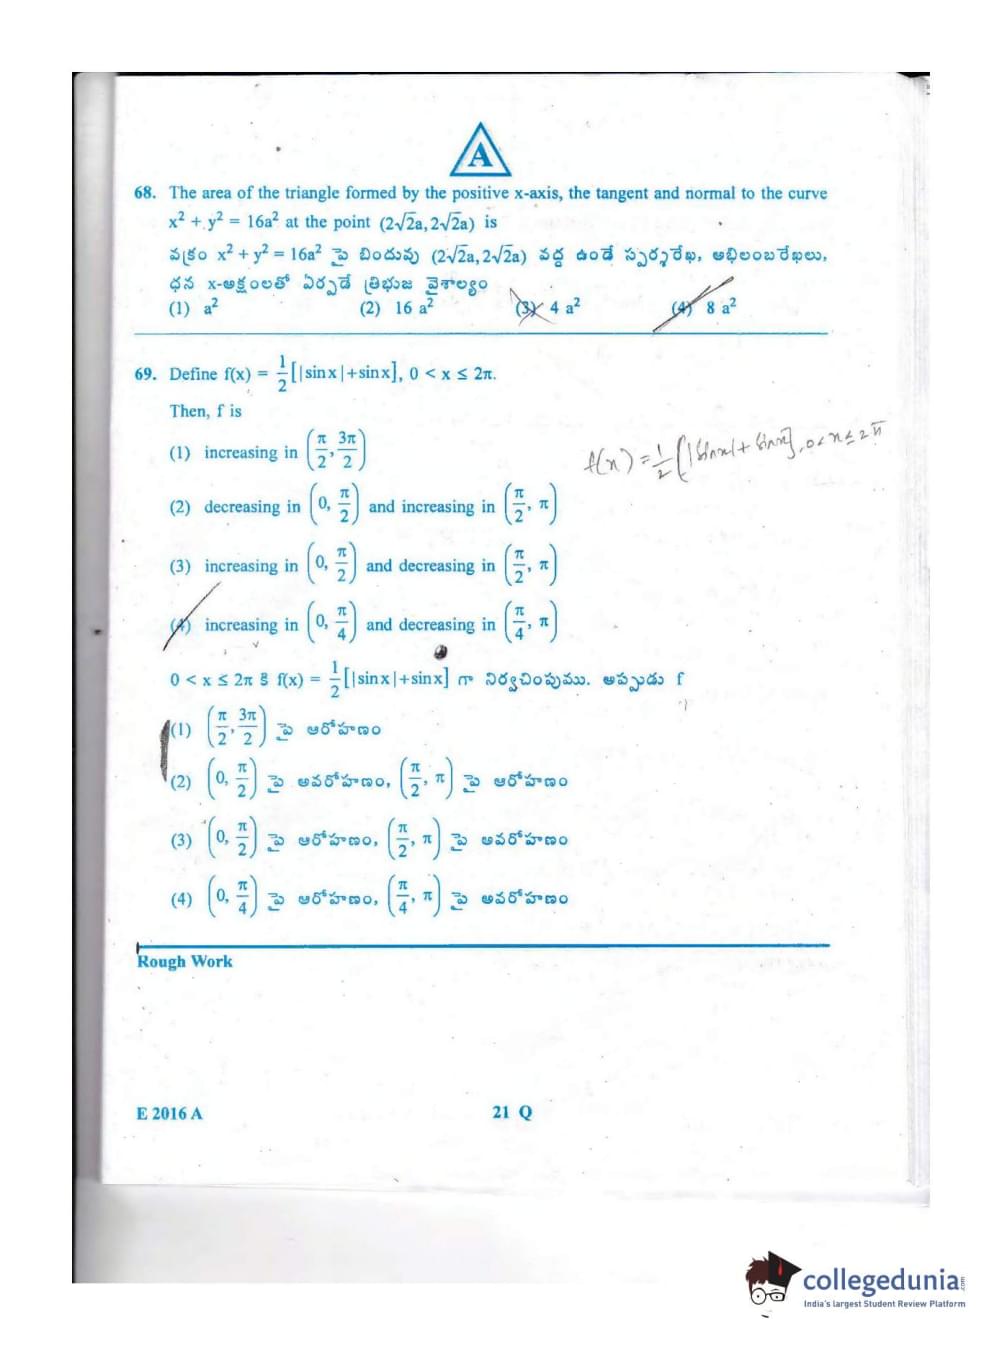 A
68. The area of the triangle formed by the positive x-axis, the tangent and normal to the curve
x² + y² = 16a² at the point (2√2a, 2√2a) is
వక్రం x² + y² = 16a² పై బిందువు (2√2a, 2√2a) వద్ద ఉండే స్పర్శరేఖ, అభిలంబరేఖలు,
ధన x-అక్షంలతో ఏర్పడే త్రిభుజ వైశాల్యం
(1) a² (2) 16 a² (3) 4 a² (4) 8 a²
69. Define f(x) = 1/2 [|sin x|+sin x], 0 < x ≤ 2π.
Then, f is
(1) increasing in (π/2, 3π/2)
f(x) = 1/2 [|sinx| + sinx], 0 < x ≤ 2π
(2) decreasing in (0, π/2) and increasing in (π/2, π)
(3) increasing in (0, π/2) and decreasing in (π/2, π)
(4) increasing in (0, π/4) and decreasing in (π/4, π)
0 < x ≤ 2π కి f(x) = 1/2 [|sin x|+sin x] గా నిర్వచింపుము. అప్పుడు f
(1) (π/2, 3π/2) పై ఆరోహణం
(2) (0, π/2) పై అవరోహణం, (π/2, π) పై ఆరోహణం
(3) (0, π/2) పై ఆరోహణం, (π/2, π) పై అవరోహణం
(4) (0, π/4) పై ఆరోహణం, (π/4, π) పై అవరోహణం
Rough Work
E 2016 A 21 Q
collegedunia.com
India's largest Student Review Platform